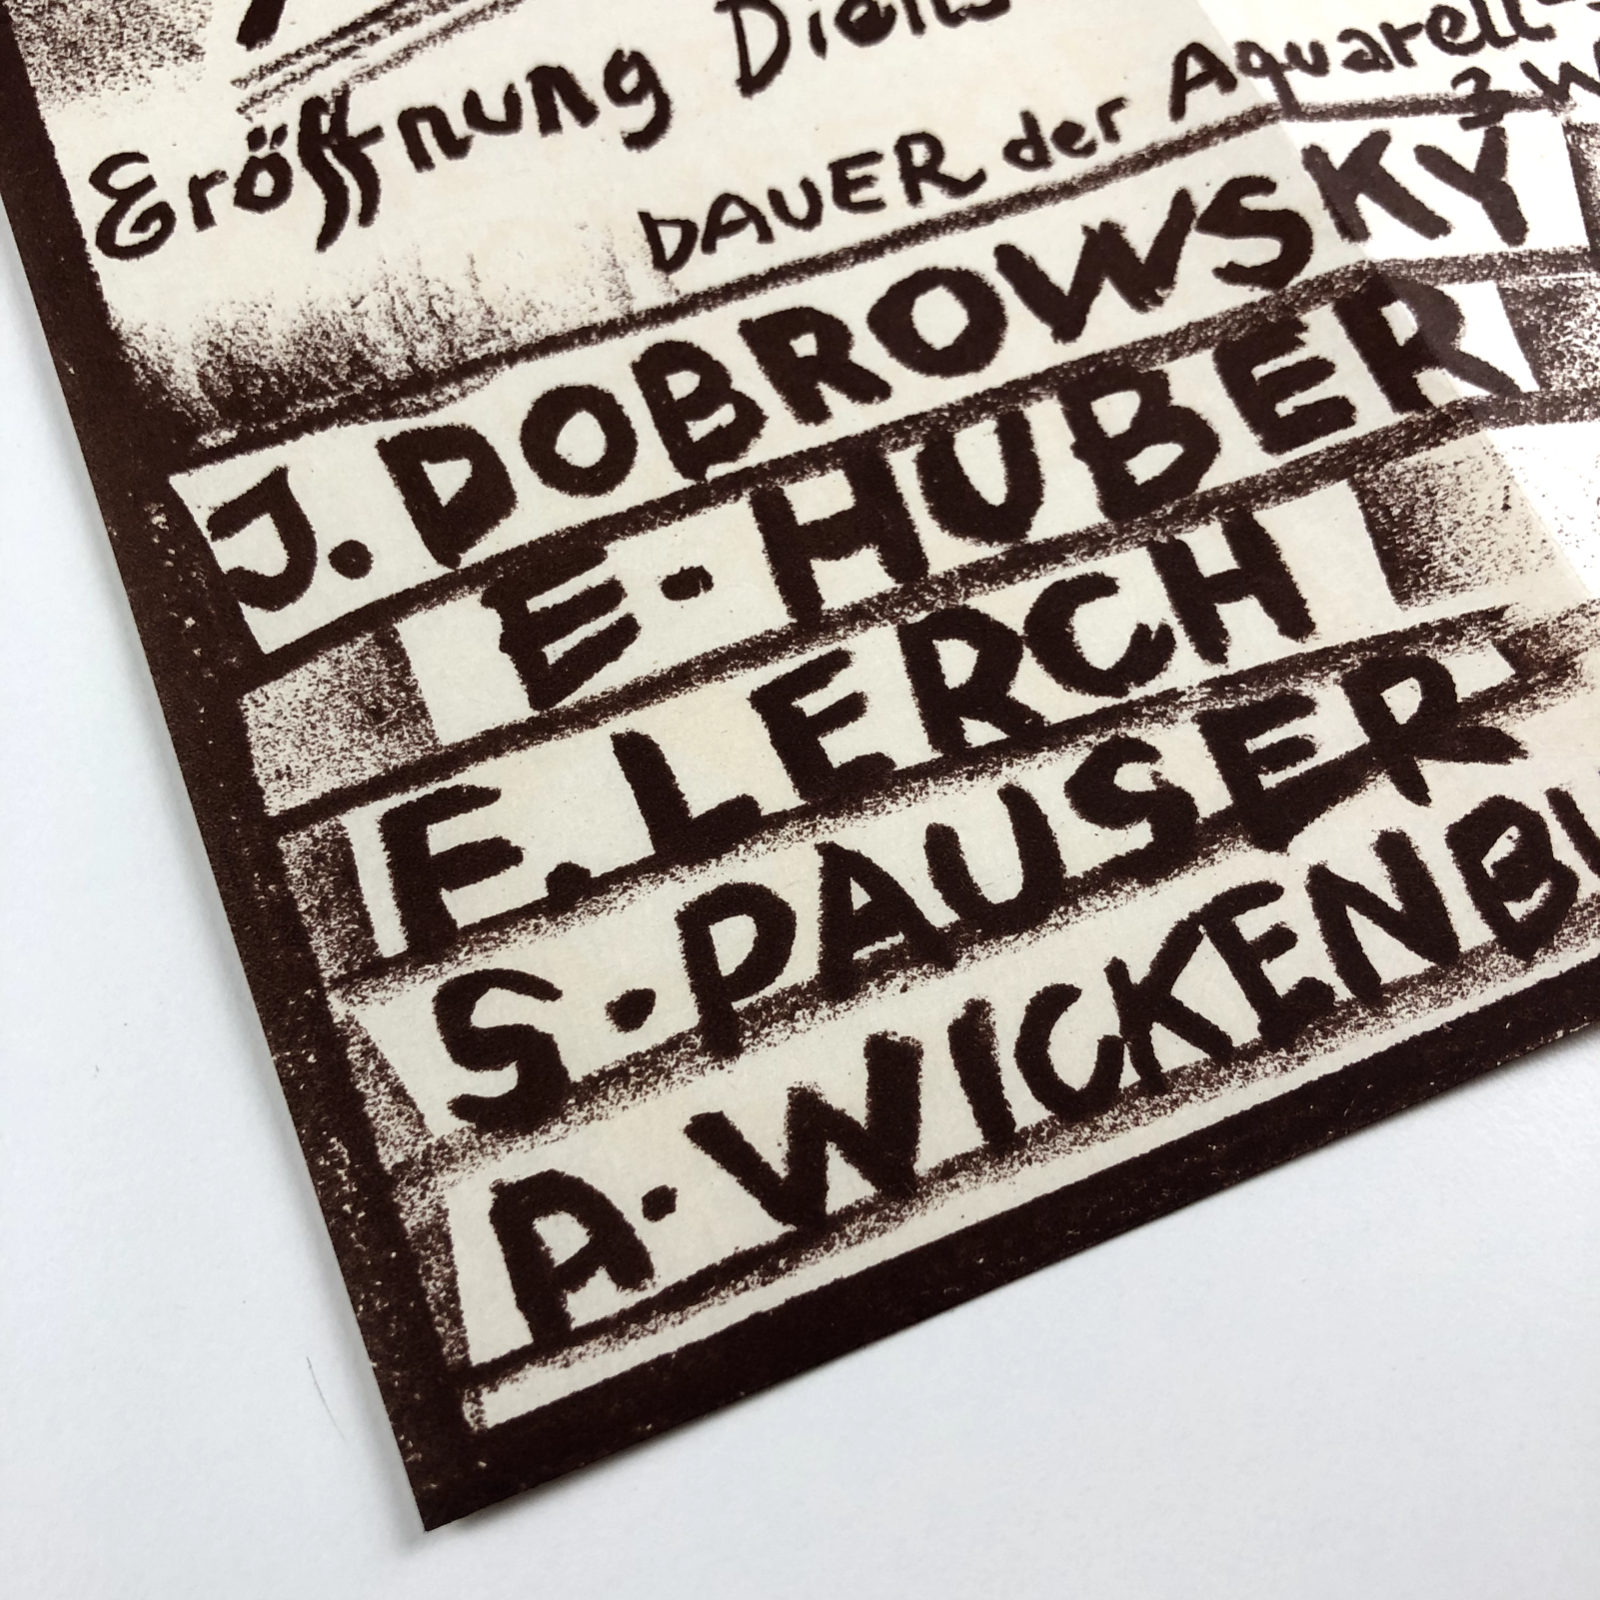 Eröffnung Diens
DAUER der Aquarell
3 W
J. DOBROWSKY
E. HUBER
F. LERCH
S. PAUSER
A. WICKENBU